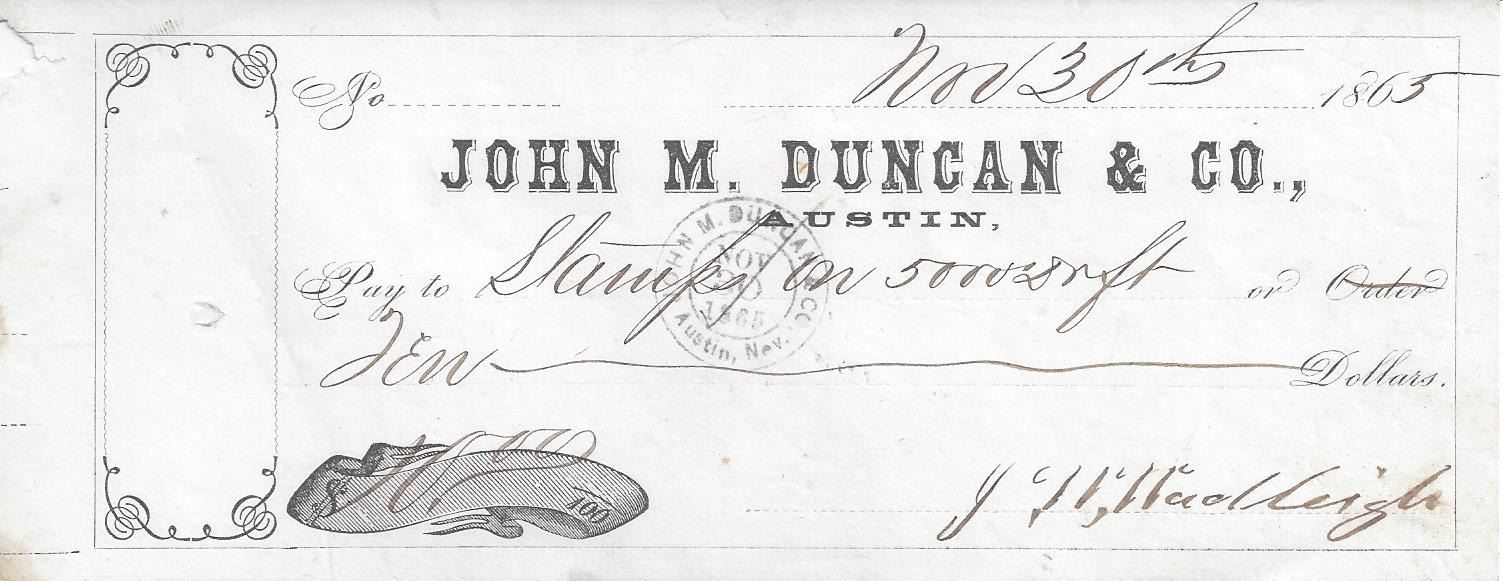 No Nov 30th 1865
JOHN M. DUNCAN & CO.,
AUSTIN,
Pay to Stamps on 5000 or Order
JOHN M. DUNCAN & CO
NOV
30
1865
Austin, Nev.
Ten Dollars.
$ 10. 00/100
J W, Wadleigh